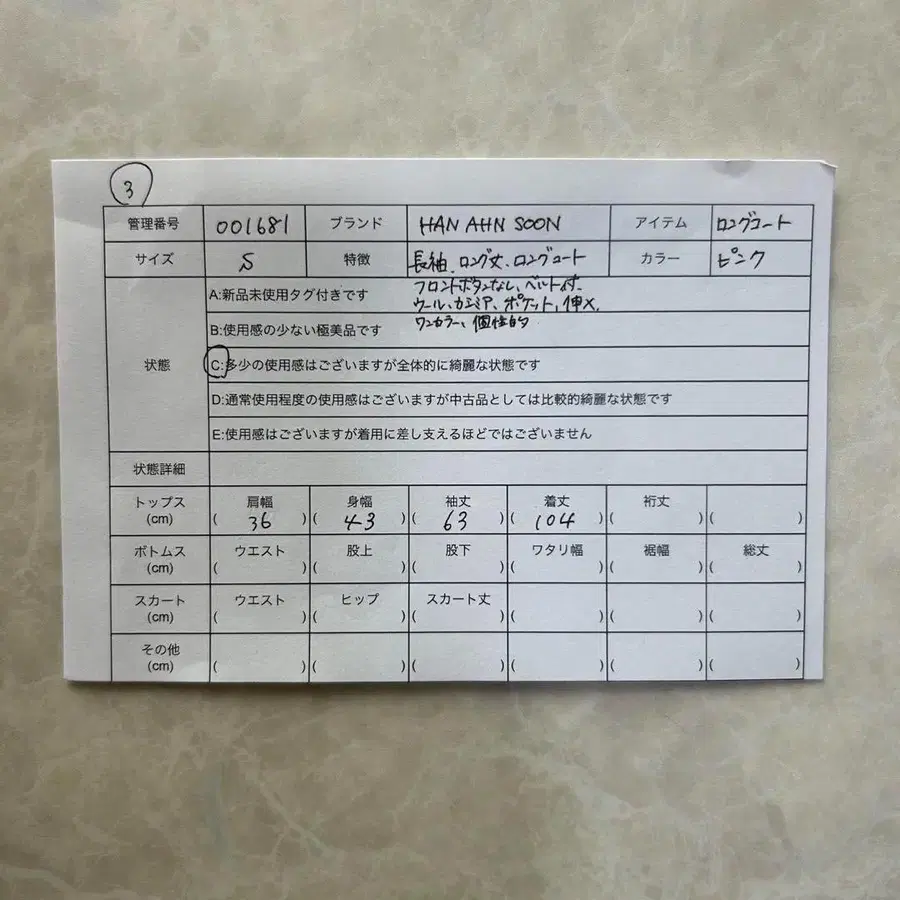 3
管理番号 001681 ブランド HAN AHN SOON アイテム ロングコート
サイズ S 特徴 長袖、ロング丈、ロングコート カラー ピンク
フロントボタンなし、ベルト付、
ウール、カシミア、ポケット、伸×、
ワンカラー、個性的
状態
A:新品未使用タグ付きです
B:使用感の少ない極美品です
C:多少の使用感はございますが全体的に綺麗な状態です
D:通常使用程度の使用感はございますが中古品としては比較的綺麗な状態です
E:使用感はございますが着用に差し支えるほどではございません
状態詳細
トップス 肩幅 身幅 袖丈 着丈 裄丈
(cm) ( 36 ) ( 43 ) ( 63 ) ( 104 ) ( ) ( )
ボトムス ウエスト 股上 股下 ワタリ幅 裾幅 総丈
(cm) ( ) ( ) ( ) ( ) ( ) ( )
スカート ウエスト ヒップ スカート丈
(cm) ( ) ( ) ( ) ( ) ( ) ( )
その他
(cm) ( ) ( ) ( ) ( ) ( ) ( )